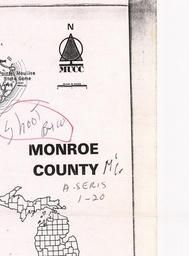 N
MUCC
Pointe Mouillee
State Game
Area
Shoot
MONROE
COUNTY
A-SERIS
1-20